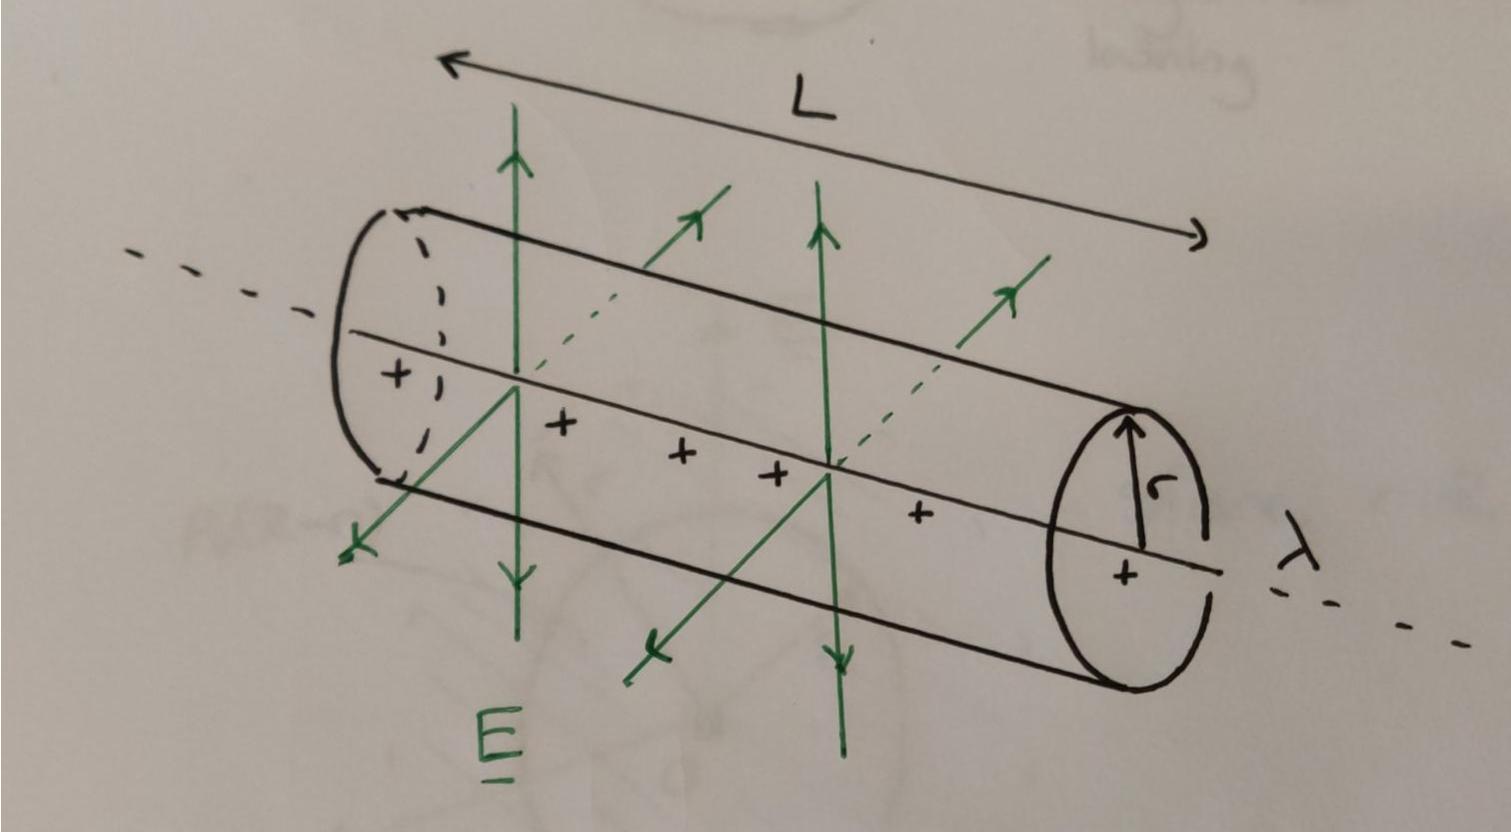 L
+
+
+
+
+
r
+
λ
E